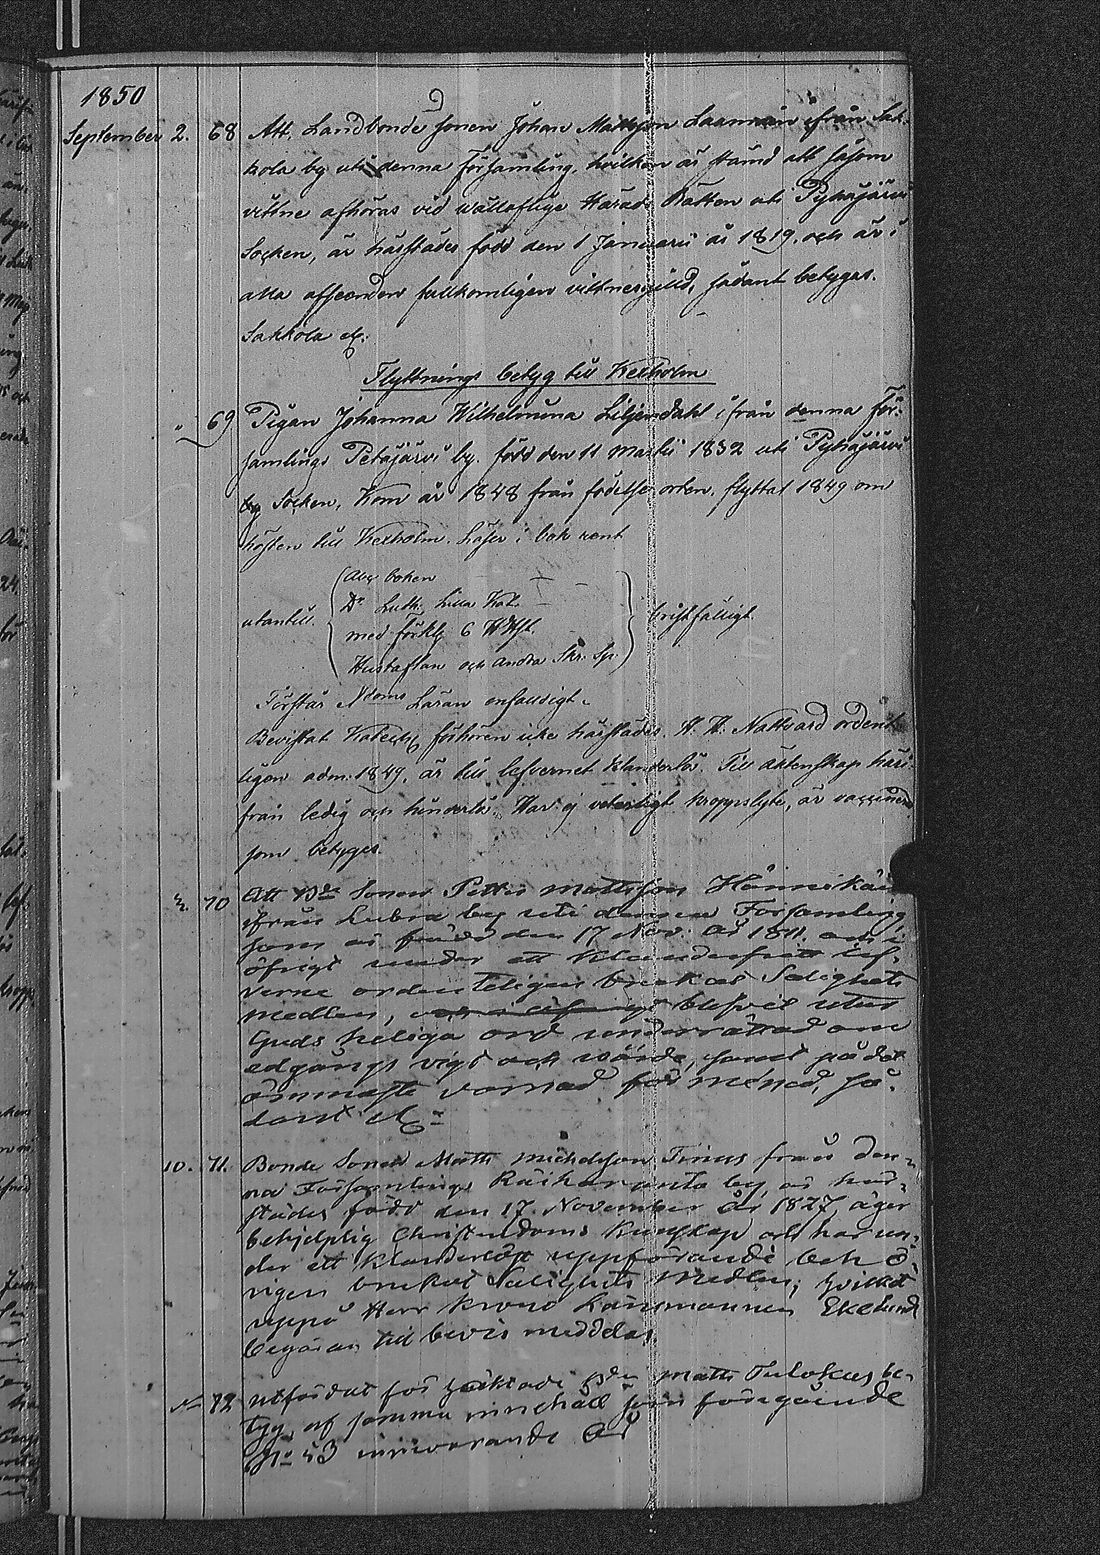 1850
September 2. 68 Att Landbonde sonen Johan Mattsson Laaminen ifrån Sak-
kola by uti denna Församling, hvilken är stämd att såsom
vittne afhöras vid vällofliga Härads Rätten uti Pyhäjärvi
Socken, är härstädes född den 1 Januarii år 1819. och är i
alla afseenden fullkomligen vittnesgild, sådant betygas.
Sakkola etc.
Flyttnings betyg till Kexholm
" 69 Pigan Johanna Wilhelmina Liljendahl ifrån denna För-
samlings Petäjärvi by, född den 11 Martii 1832 uti Pyhäjärvi
by Socken, Kom år 1848 från födelse orten, flyttat 1849 om
hösten till Kexholm. Läser i bok rent
utantill
Abc boken
Dr Luth. Lilla Kat.
med förkl. 6 H.H.st.
Hustaflan och andra Skr. Sp.
bristfälligt.
Förstår Ndoms Läran enfaldigt.
Bevistat Kateches förhören icke härstädes. H. H. Nattvard ordent-
ligen adm. 1849, är till lefvernet klanderlös. Till äktenskap häri-
från ledig och hinderlös. Har ej veterligt kroppslyte, är vaccinerad
som betygas.
70 Att Bde Sonen Petter Mattsson Hännikäin
ifrån Lubra by uti denna Församling,
som är född den 17 Nov. år 1811. och i
öfrigt under ett klanderfritt lef-
verne ordenteligen brukat Salighets
medlen, blifvit utur
Guds heliga ord underrättad om
edgångs vigt och värde, samt på det
ömmaste varnad för mened, så-
dant etc.
10. 71. Bonde Sonen Matts Michelsson Tinus från den-
na Församlings Räiharanta by, är här-
städes född den 17. November år 1827, äger
behjelplig Christendoms Kunskap och har un-
der ett klanderlöst uppförande och ö-
rigen brukat Salighets Medlen; hvilket
uppå Herr Krono Länsmannen Ekelund
begäran till bevis meddelas.
72 Utfärdat för Matts Tulokas be-
tyg af samma innehåll som föregående
No 53 innevarande År